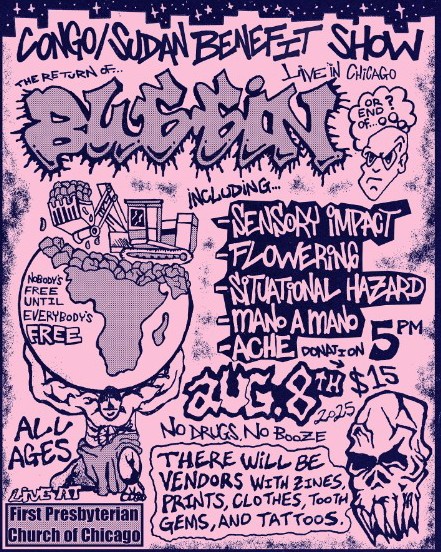 CONGO/SUDAN BENEFIT SHOW
THE RETURN OF...
LIVE IN CHICAGO
BUGGIN
OR
END?
OF...
INCLUDING...
SENSORY IMPACT
FLOWERING
SITUATIONAL HAZARD
MANO A MANO
ACHE
DONATION
5 PM
$15
AUG. 8TH
2025
NO DRUGS, NO BOOZE
NOBODY'S
FREE
UNTIL
EVERYBODY'S
FREE
ALL
AGES
LIVE AT
First Presbyterian
Church of Chicago
THERE WILL BE
VENDORS WITH ZINES,
PRINTS, CLOTHES, TOOTH
GEMS, AND TATTOOS.